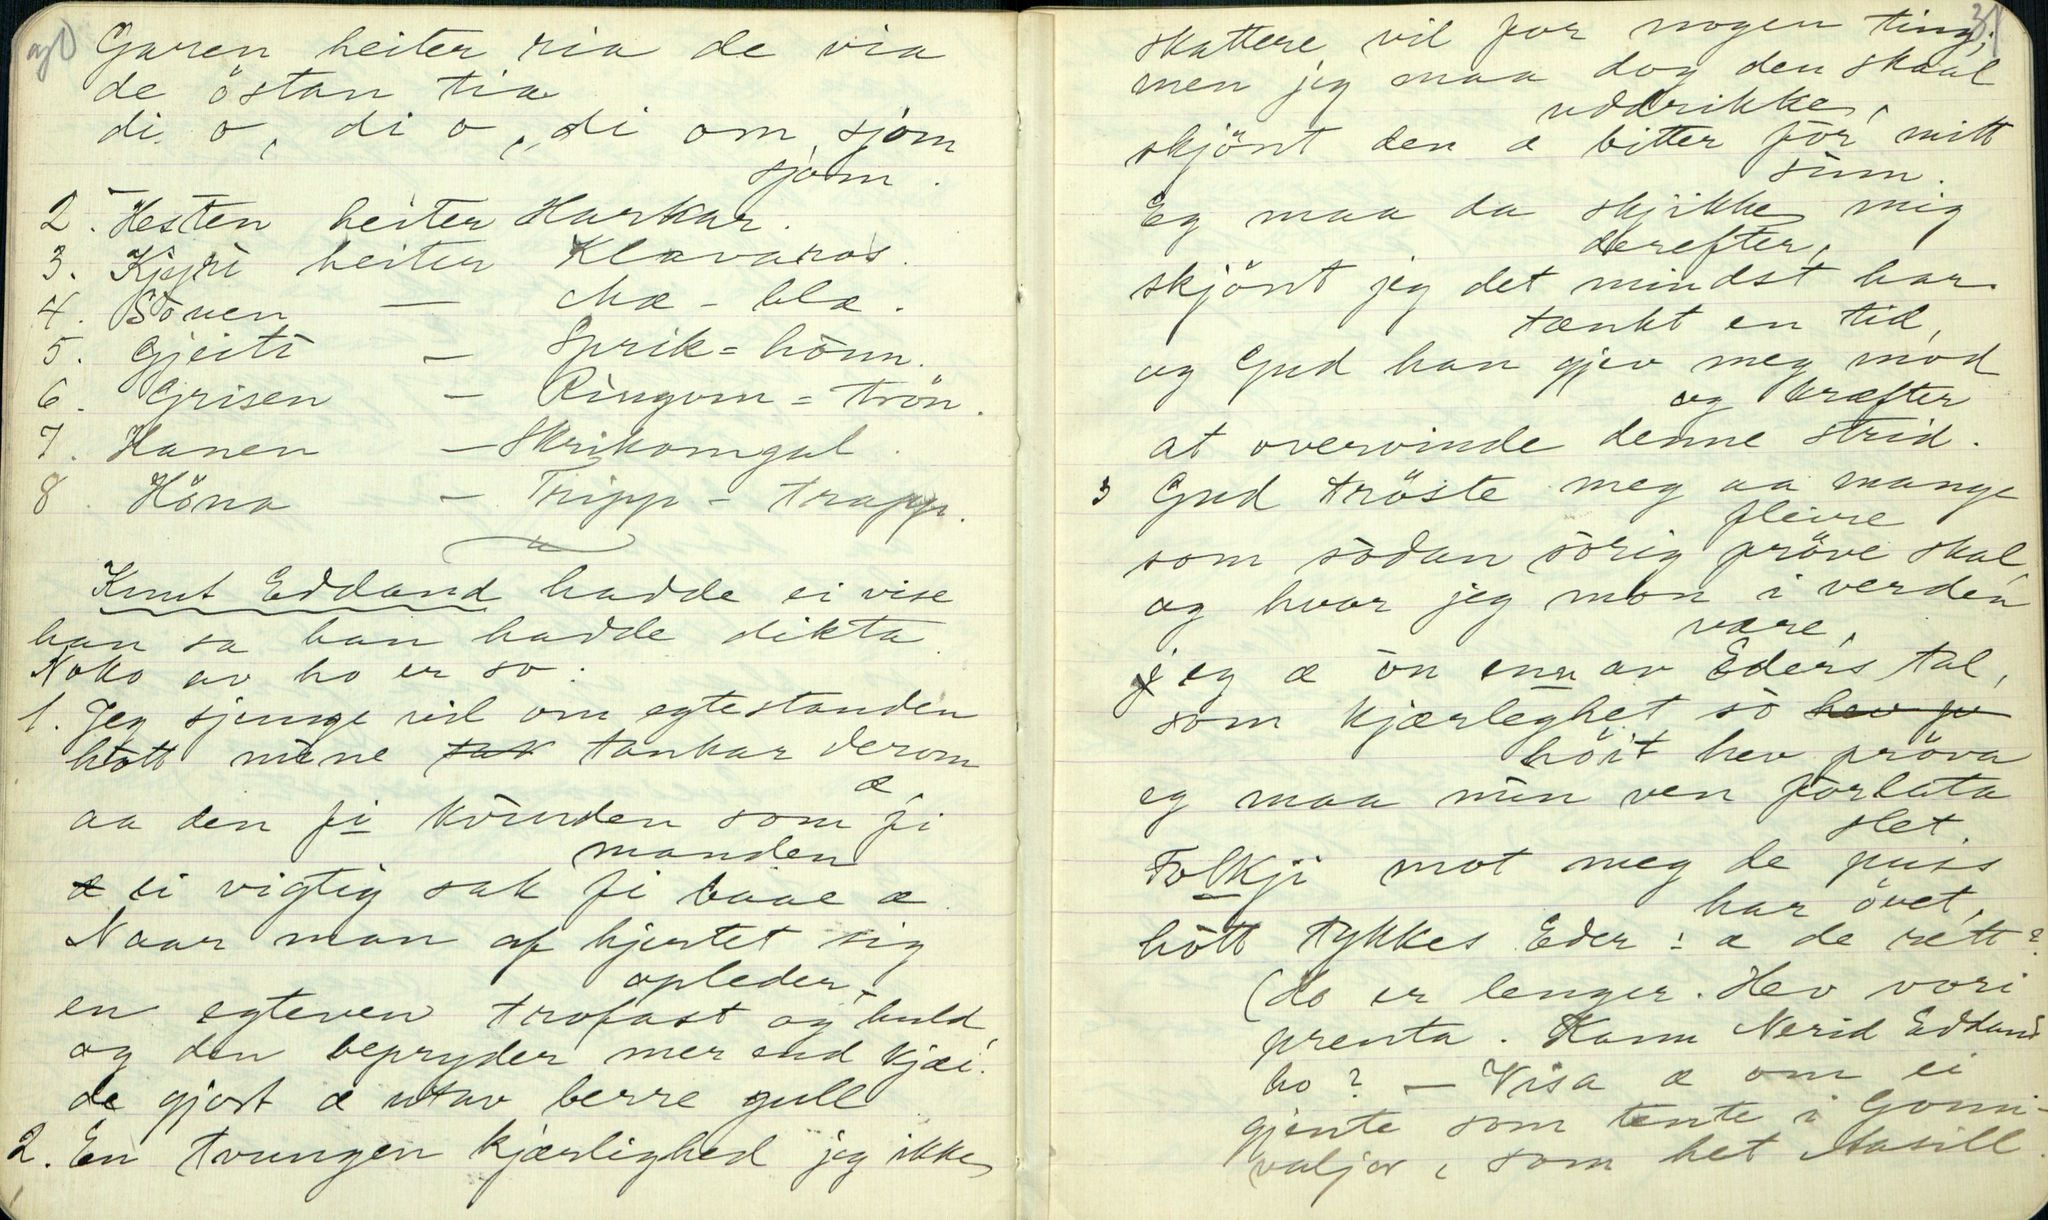 Garen heiter ria de via
de östan tia
di o, di o, di om sjom
sjom.
2. Hesten heiter Harkar.
3. Kjyri heiter Klavaros.
4. Souen — Mæ-blæ.
5. Gjeiti — Sprik=hönn.
6. Grisen — Ringom=trön.
7. Hanen — Skrikomgal.
8. Höna — Tripp-trapp.
Knut Eddand hadde ei vise
han sa han hadde dikta.
Noko av ho er so:
1. Jeg sjunge vil om egtestanden
hott mine tankar derom
æ
aa den fi kvinden som fi
manden
ei vigtig sak fi baae æ
Naar man af hjertet sig
opleder
en egteven trofast og huld
og den bepryder mer end kjæi
de gjort æ utav berre gull
2. En tvungen kjærlighed jeg ikke
31
skattere vil for nogen ting,
men jeg maa dog den skaal
uddrikke,
skjönt den æ bitter for mitt
sinn.
Eg maa da skjikke mig
derefter,
skjönt jeg det mindst har
tænkt en tid,
og Gud han gjev meg mod
og kræfter
at overvinde denne strid.
3 Gud tröste meg aa mange
fleire
som södan sörig pröve skal
og hvor jeg mon i verden
være,
jeg æ ön enn av Eders tal,
som kjærleghet sö
höit hev pröva
eg maa min ven forlata
slet.
Folkji mot meg de puss
har övet,
hött tykkes Eder: æ de rett?
(Ho er lenger. Hev vori
prenta. Kann Nerid Eddand
ho? — Visa æ om ei
gjente som tente i Gomi-
valjor, som het Aasill.